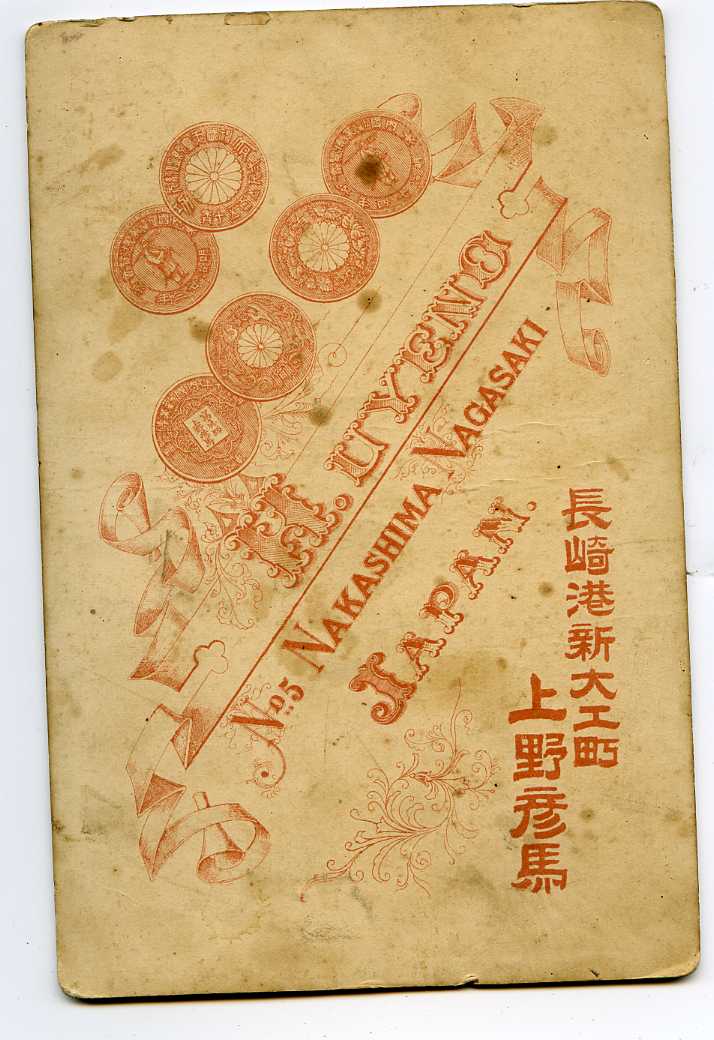 H. UYENO
No. 5 NAKASHIMA NAGASAKI
JAPAN.
長崎港新大工町
上野彦馬